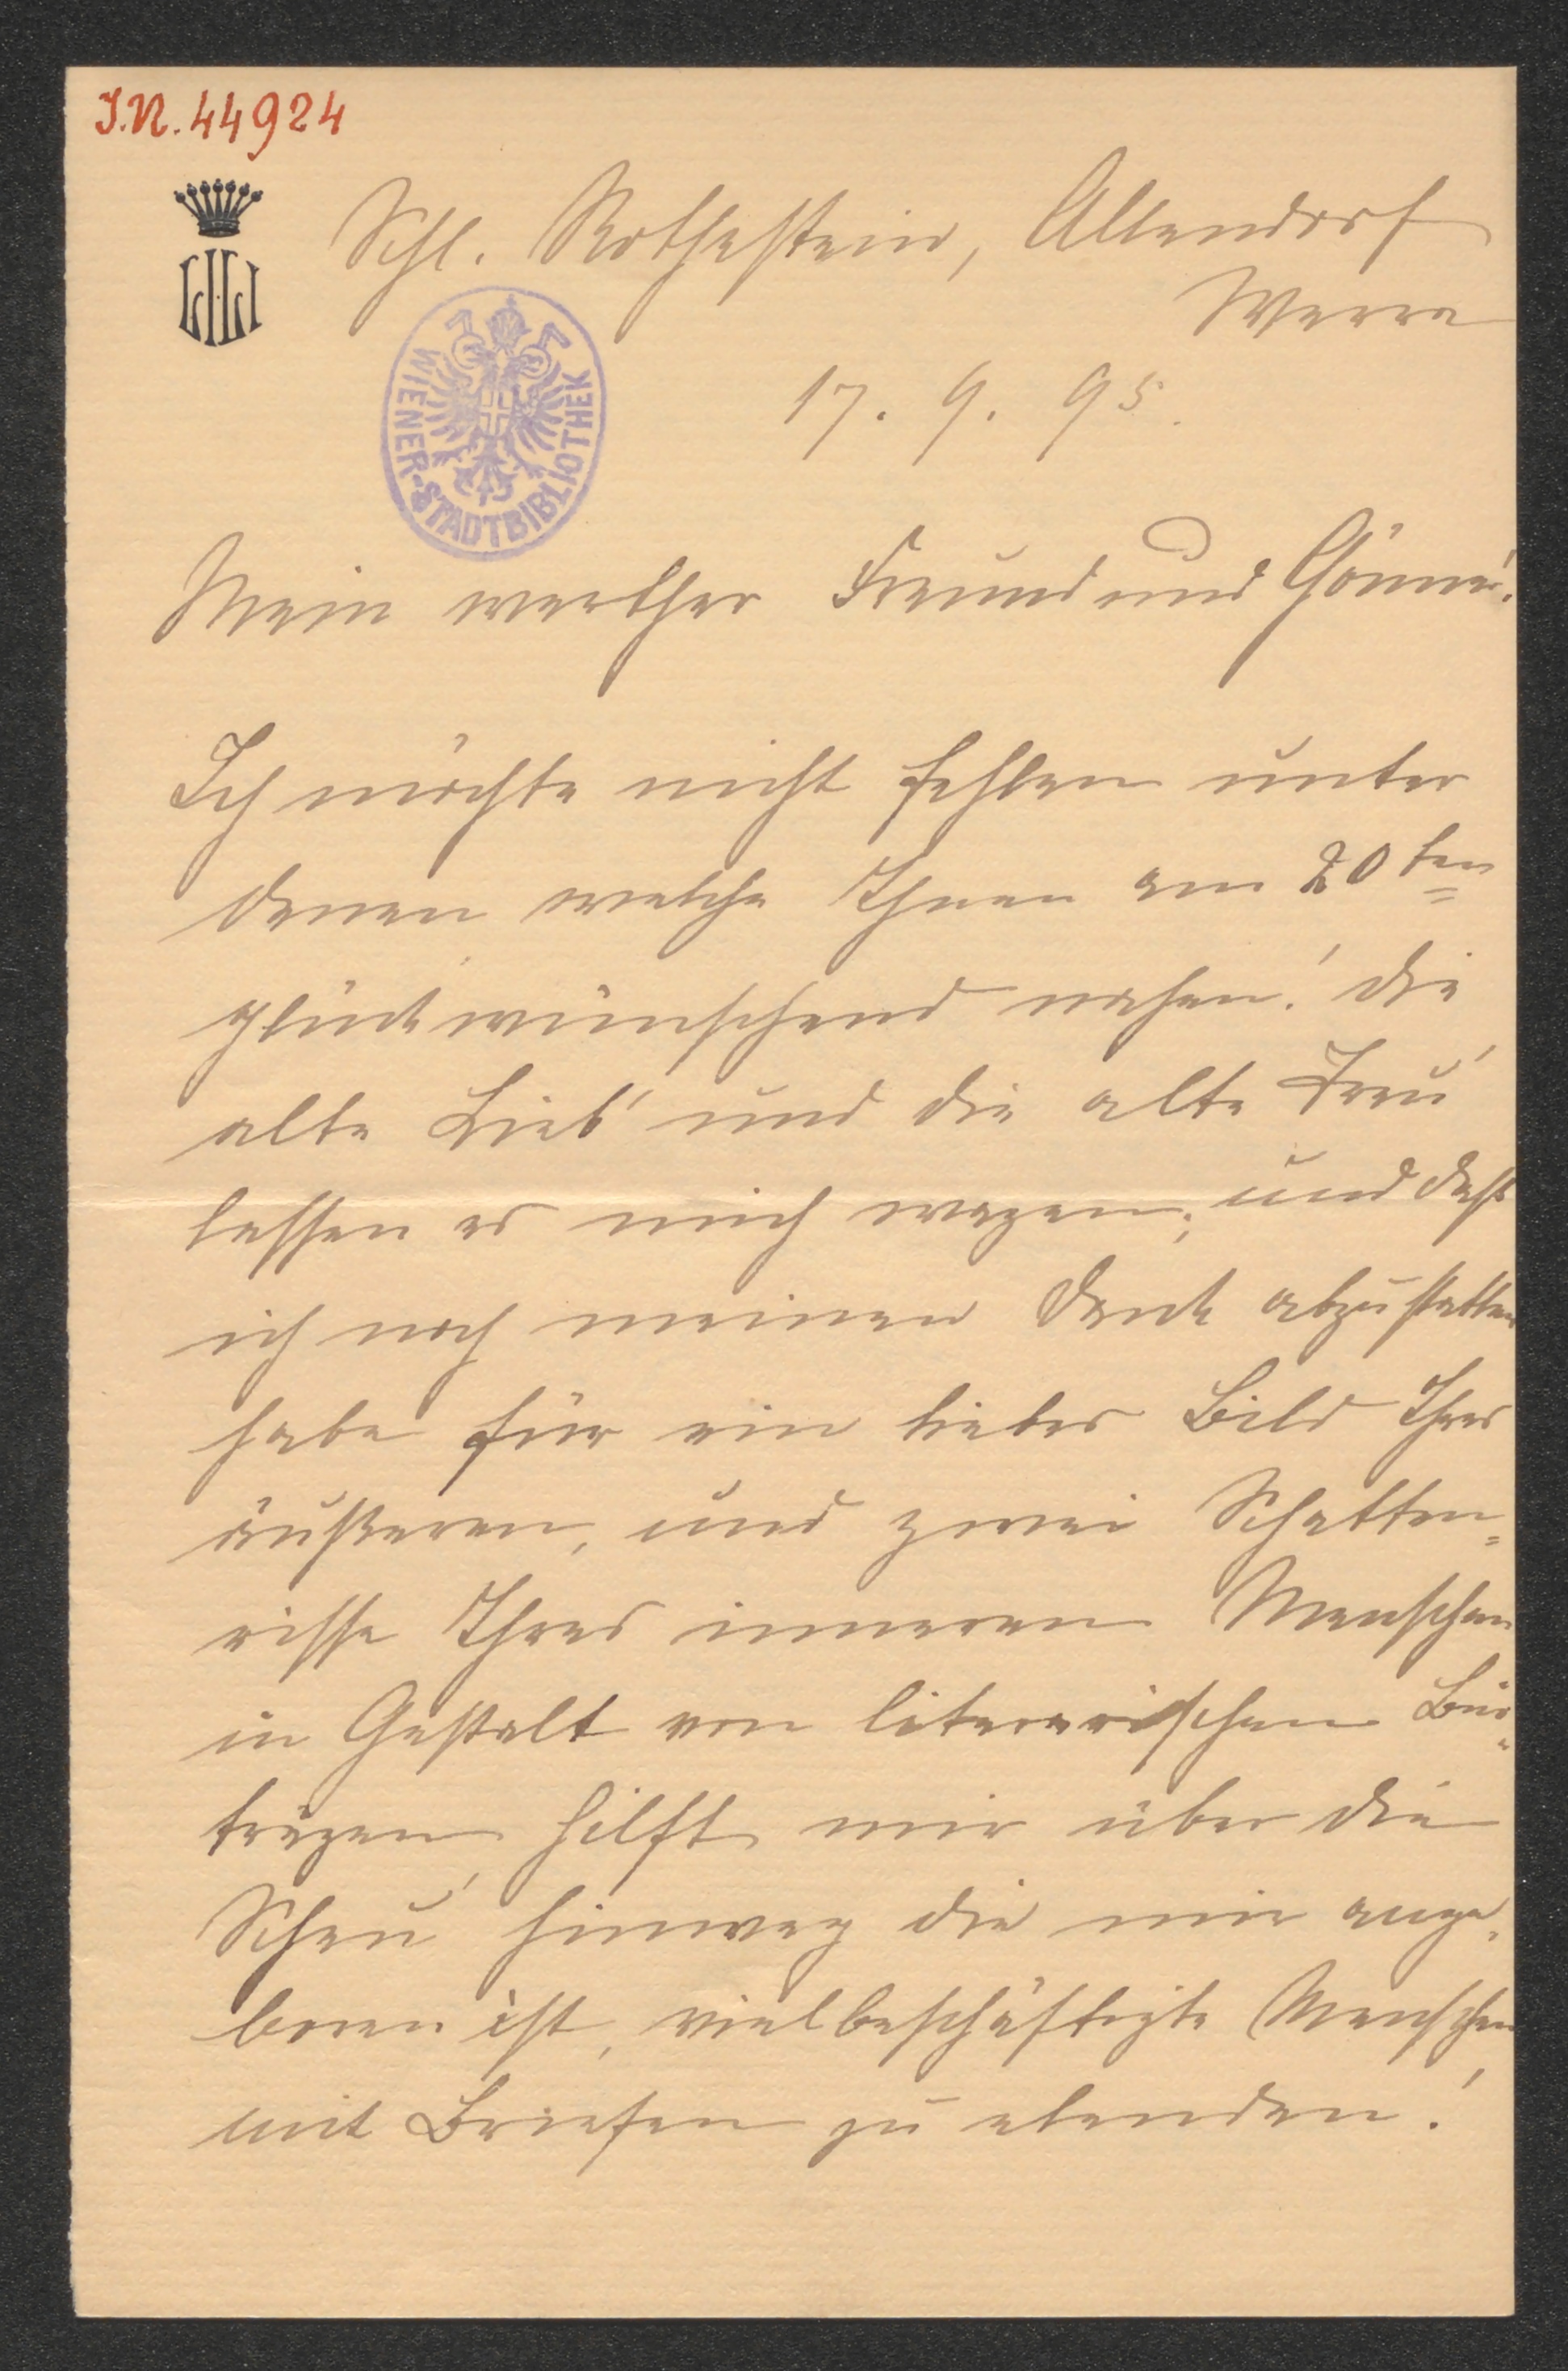 I.N. 44924
LILI
Schl. Rothestein, Allendorf
Werra
WIENER-STADTBIBLIOTHEK
17. 9. 95.
Mein werther Freund und Gönner!
Ich möchte nicht fehlen unter
denen welche Ihnen am 20ten
glückwünschend nahen! die
alte Lieb' und die alte Treu'
lassen es mich wagen; und daß
ich noch meinen Dank abzustatten
habe für ein liebes Bild Ihres
äußeren, und zwei Schatten=
risse Ihres inneren Menschen
in Gestalt von literarischen Bei=
trägen, hilft mir über die
Scheu hinweg die mir ange=
boren ist, vielbeschäftigte Menschen
mit Briefen zu elenden!